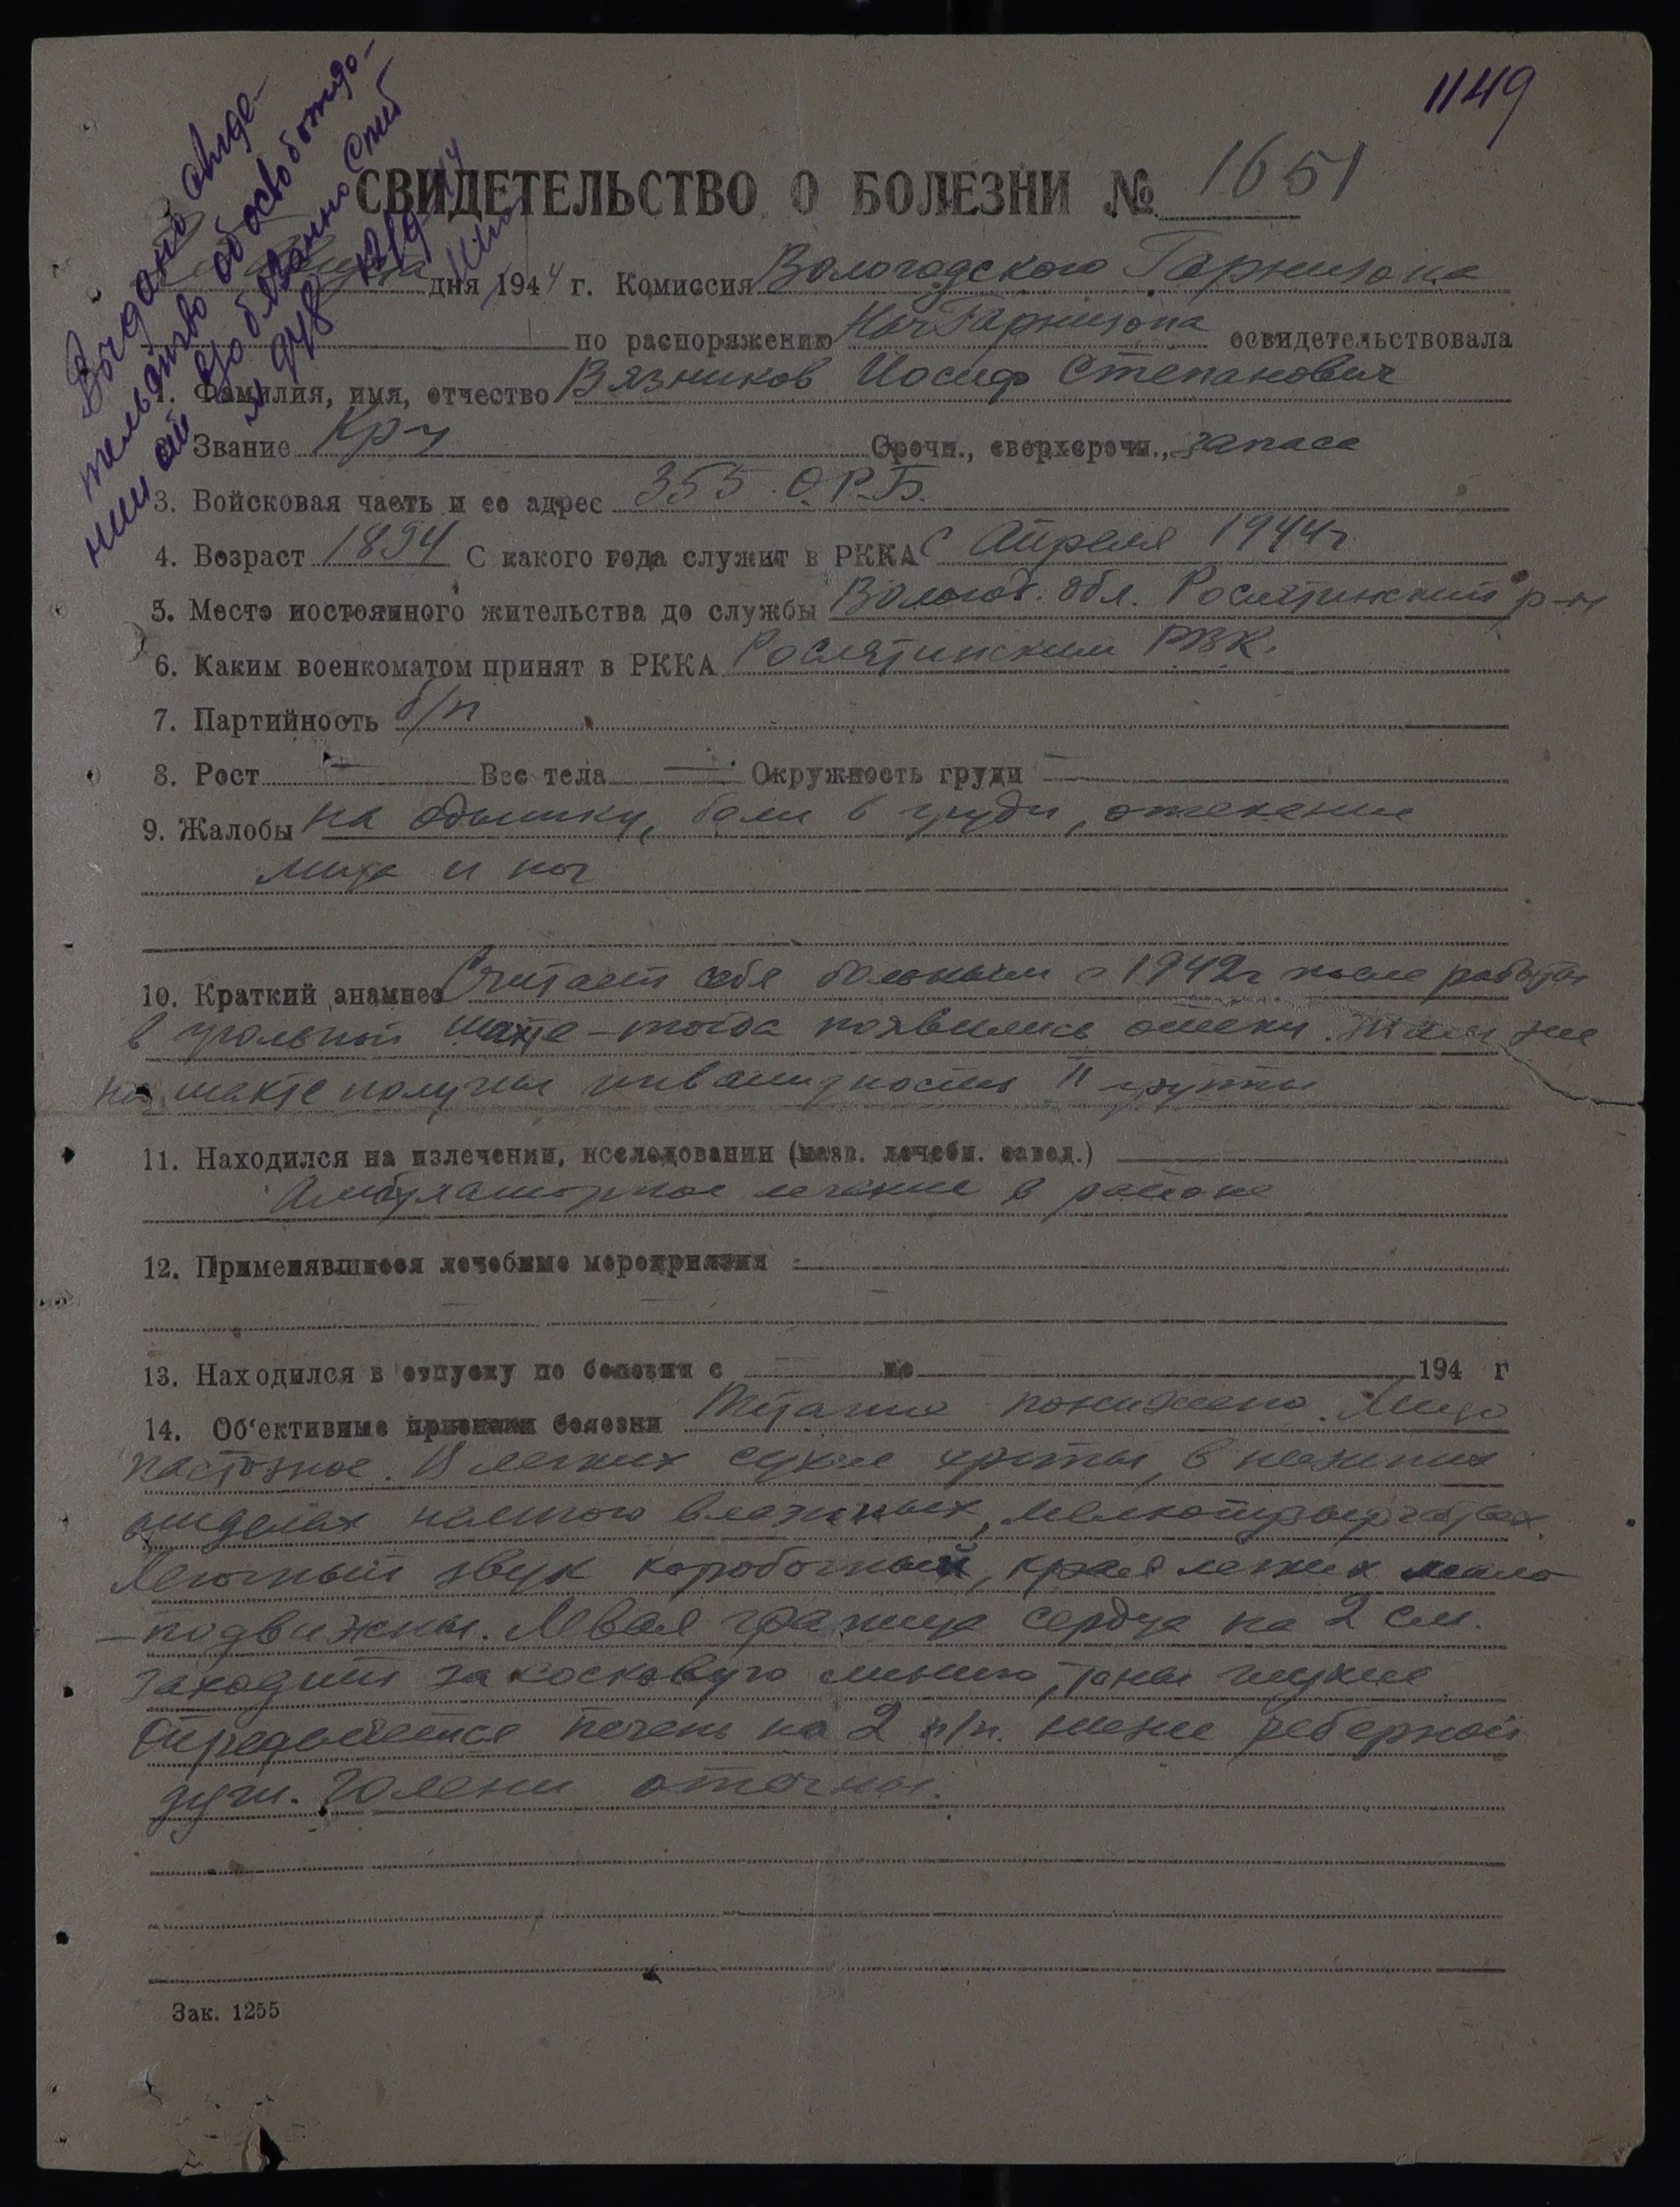 1149
Выдано свиде-
тельство об освобожде-
нии от в/обязанностей
СВИДЕТЕЛЬСТВО О БОЛЕЗНИ № 1651
дня 1944 г. Комиссия Вологодского Гарнизона
по распоряжению НачГарнизона освидетельствовала
1. Фамилия, имя, отчество Вязников Иосиф Степанович
Звание Кр-ц Срочн., сверхсрочн., запаса
3. Войсковая часть и ее адрес 355 О.Р.Б.
4. Возраст 1894 С какого года служит в РККА с Апреля 1944г
5. Место постоянного жительства до службы Вологод. обл. Рослятинский р-н
6. Каким военкоматом принят в РККА Рослятинским РВК.
7. Партийность б/п
8. Рост — Вес тела — Окружность груди —
9. Жалобы на одышку, боли в груди, отекание
лица и ног
10. Краткий анамнез Считает себя больным с 1942г после работы
в угольной шахте – тогда появились отеки. Там же
на шахте получил инвалидность II группы
11. Находился на излечении, исследовании (назв. лечебн. завед.)
Амбулаторное лечение в районе
12. Применявшиеся лечебные мероприятия
13. Находился в отпуску по болезни с по 194 г
14. Об'ективные признаки болезни Питание понижено. Лицо
пастозное. В легких сухие хрипы, в нижних
отделах немного влажных, мелкопузырчатых.
Легочный звук коробочный, края легких мало
–подвижны. Левая граница сердца на 2 см.
заходит за сосковую линию, тоны глухие
Определяется печень на 2 п/п. ниже реберной
дуги. Голени отечны.
Зак. 1255